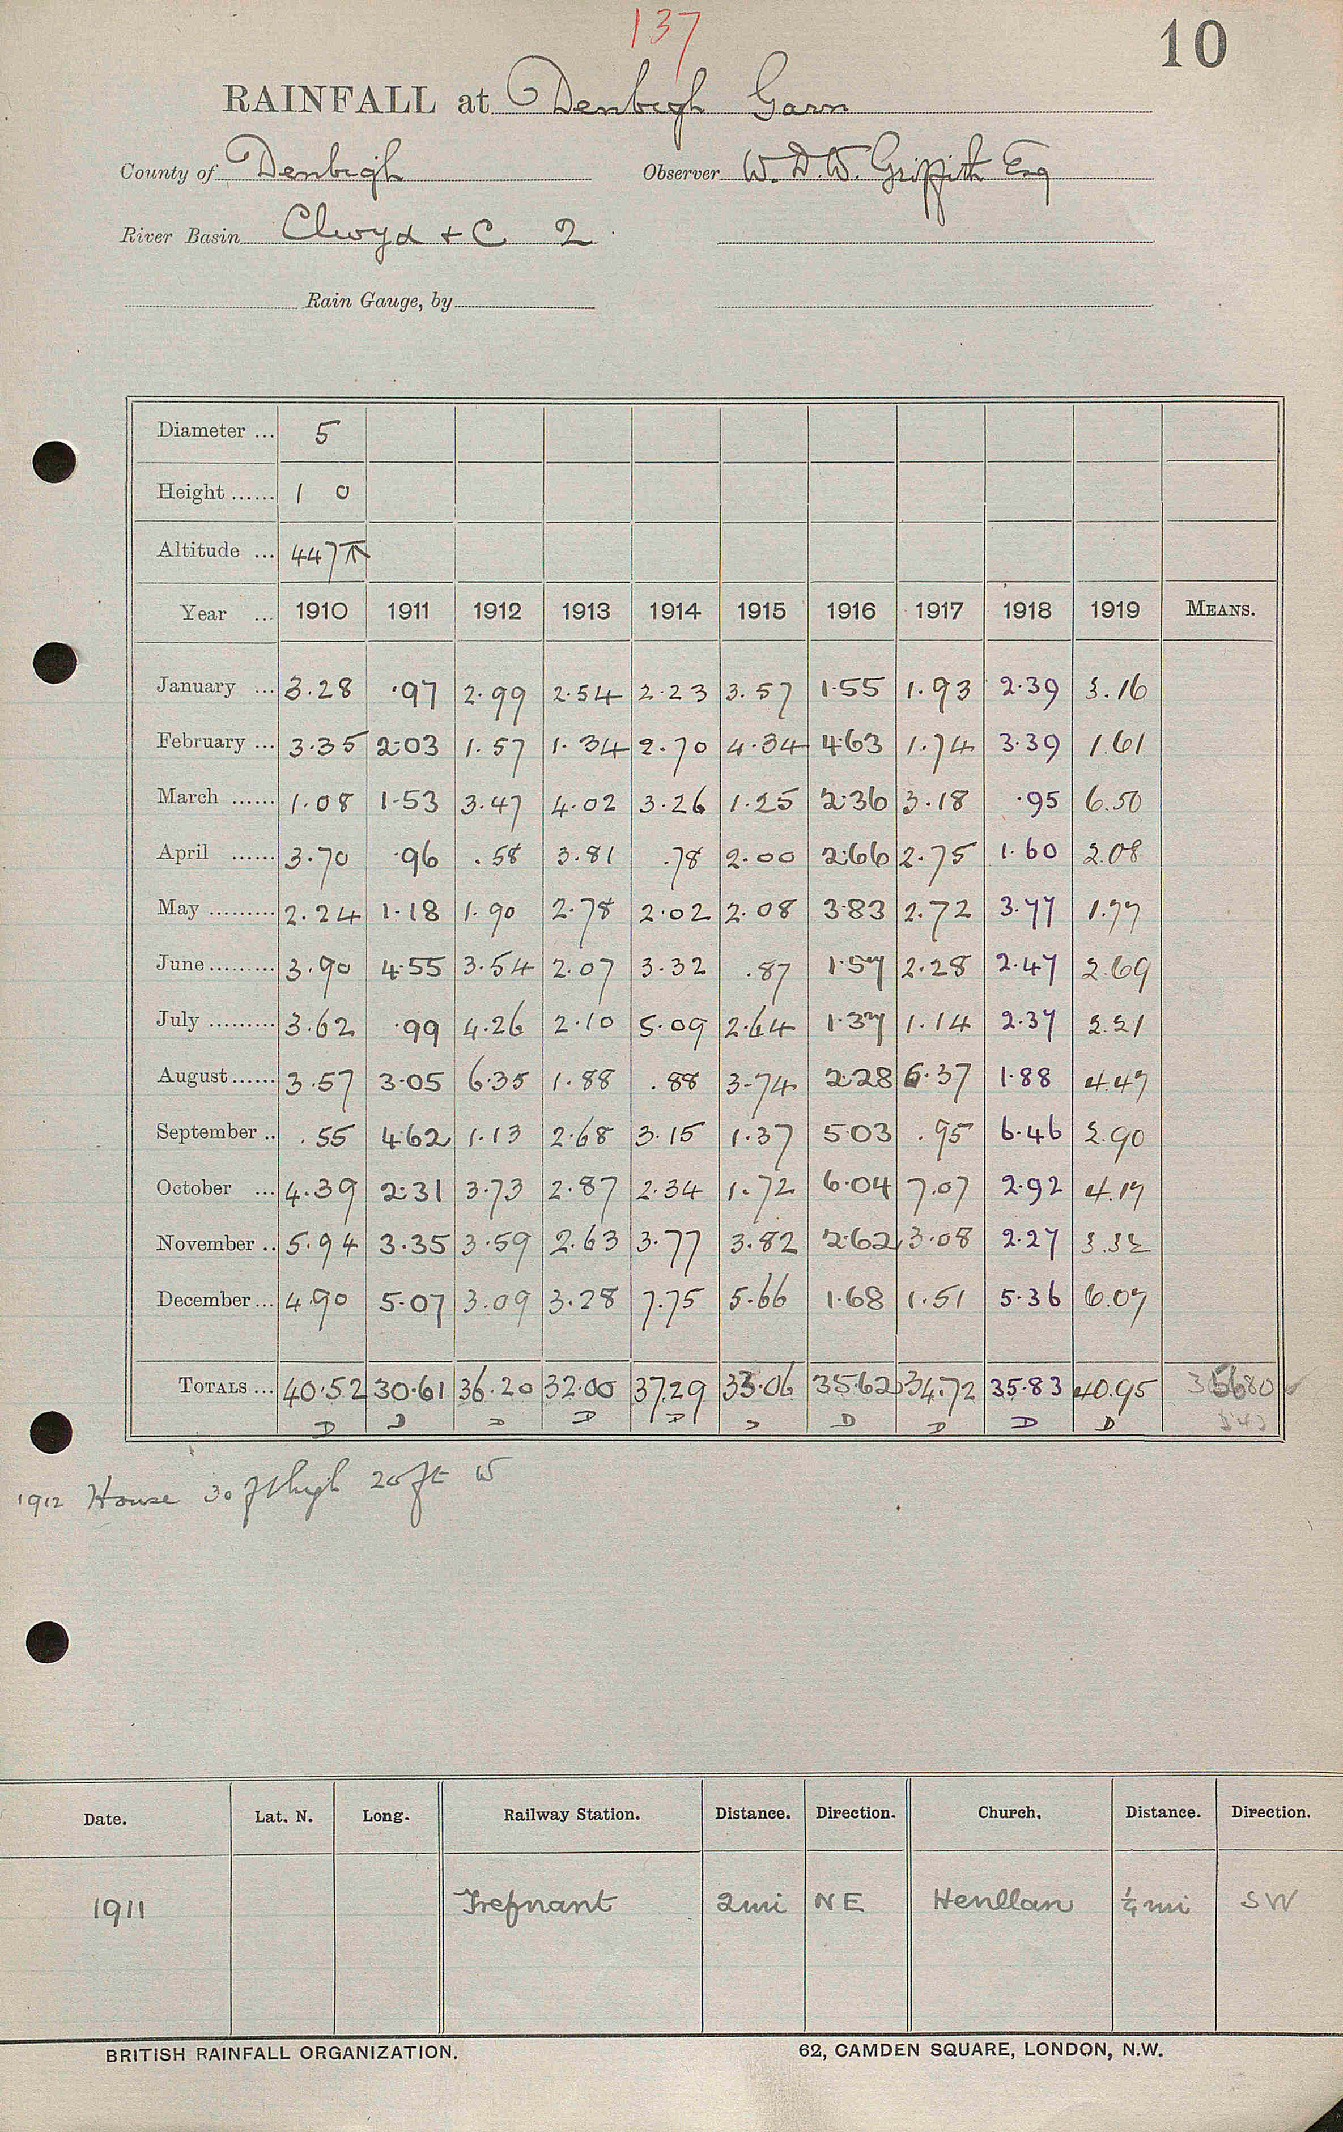 137
10
RAINFALL at Denbigh Garn
County of Denbigh Observer W. D. W. Griffith Esq
River Basin Clwyd + C 2
Rain Gauge, by
Diameter ... 5
Height ...... 1 0
Altitude ... 447
Year ... 1910 1911 1912 1913 1914 1915 1916 1917 1918 1919 MEANS.
January ... 3.28 .97 2.99 2.54 2.23 3.57 1.55 1.93 2.39 3.16
February ... 3.35 2.03 1.57 1.34 2.70 4.34 4.63 1.74 3.39 1.61
March ...... 1.08 1.53 3.47 4.02 3.26 1.25 2.36 3.18 .95 6.50
April ...... 3.70 .96 .58 3.81 .78 2.00 2.66 2.75 1.60 2.08
May ......... 2.24 1.18 1.90 2.78 2.02 2.08 3.83 2.72 3.77 1.77
June ......... 3.90 4.55 3.54 2.07 3.32 .87 1.57 2.28 2.47 2.69
July ......... 3.62 .99 4.26 2.10 5.09 2.64 1.37 1.14 2.37 2.21
August ...... 3.57 3.05 6.35 1.88 .88 3.74 2.28 6.37 1.88 4.47
September .. .55 4.62 1.13 2.68 3.15 1.37 5.03 .95 6.46 2.90
October ... 4.39 2.31 3.73 2.87 2.34 1.72 6.04 7.07 2.92 4.17
November .. 5.94 3.35 3.59 2.63 3.77 3.82 2.62 3.08 2.27 3.32
December ... 4.90 5.07 3.09 3.28 7.75 5.66 1.68 1.51 5.36 6.07
TOTALS ... 40.52 30.61 36.20 32.00 37.29 33.06 35.62 34.72 35.83 40.95 35680
D D D D D D D D D D
1912 House 30 ft high 20 ft W
Date. Lat. N. Long. Railway Station. Distance. Direction. Church. Distance. Direction.
1911 Trefnant 2mi NE Henllan ¼ mi SW
BRITISH RAINFALL ORGANIZATION. 62, CAMDEN SQUARE, LONDON, N.W.